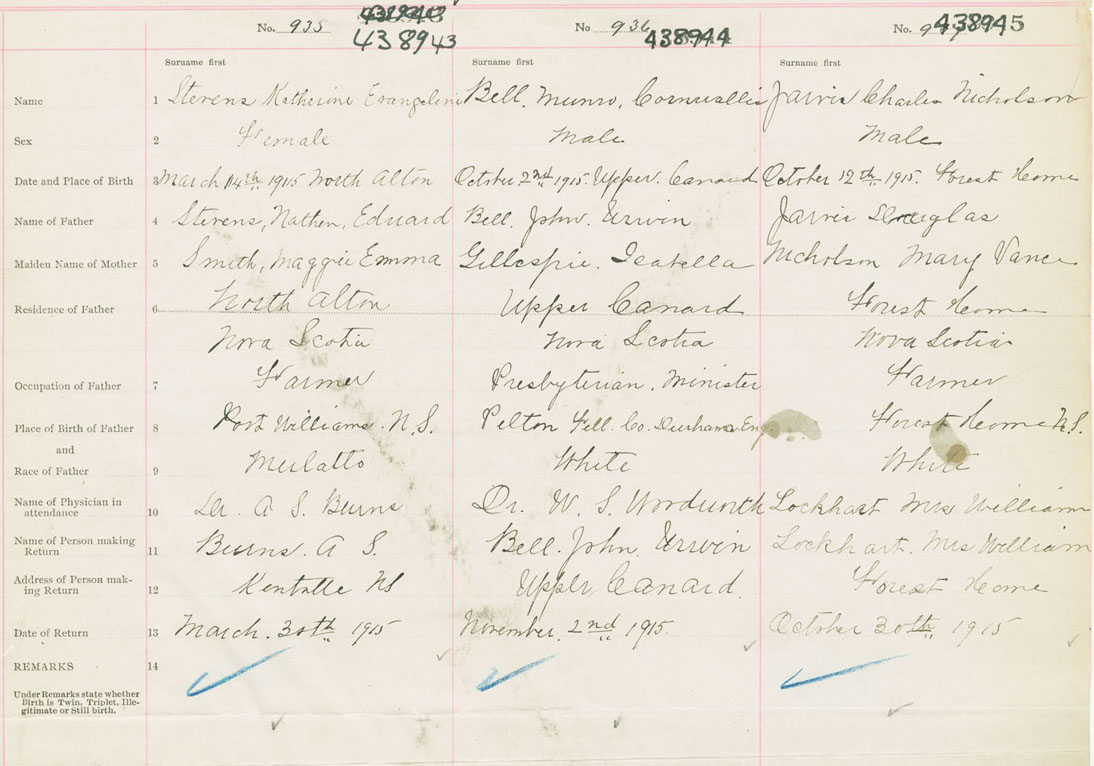 No. 935 438943 438943
No 936 438944
No. 438945
Surname first Surname first Surname first
Name 1 Stevens Katherine Evangeline Bell, Munro, Cornwallis Jarvis Charles Nicholson
Sex 2 Female Male Male
Date and Place of Birth 3 March 14th 1915 North Alton October 2nd 1915. Upper. Canard October 12th 1915. Forest Home
Name of Father 4 Stevens, Nathen, Edward Bell. John. Urwin Jarvis Douglas
Maiden Name of Mother 5 Smith, Maggie Emma Gillespie. Isabella Nicholson Mary Vance
Residence of Father 6 North Alton Upper Canard Forest Home
Nova Scotia Nova Scotia Nova Scotia
Occupation of Father 7 Farmer Presbyterian. Minister Farmer
Place of Birth of Father 8 Port Williams. N.S. Pelton Fell. Co. Durham Eng. Forest Home N.S.
and
Race of Father 9 Mulatto White White
Name of Physician in
attendance 10 Dr. A S. Burns Dr. W. S. Woodworth Lockhart Mrs William
Name of Person making
Return 11 Burns. A S. Bell. John. Urwin Lockhart. Mrs William
Address of Person mak-
ing Return 12 Kentville NS Upper Canard. Forest Home
Date of Return 13 March. 30th 1915 November. 2nd 1915. October 30th 1915
REMARKS 14
Under Remarks state whether
Birth is Twin, Triplet, Ille-
gitimate or Still birth.